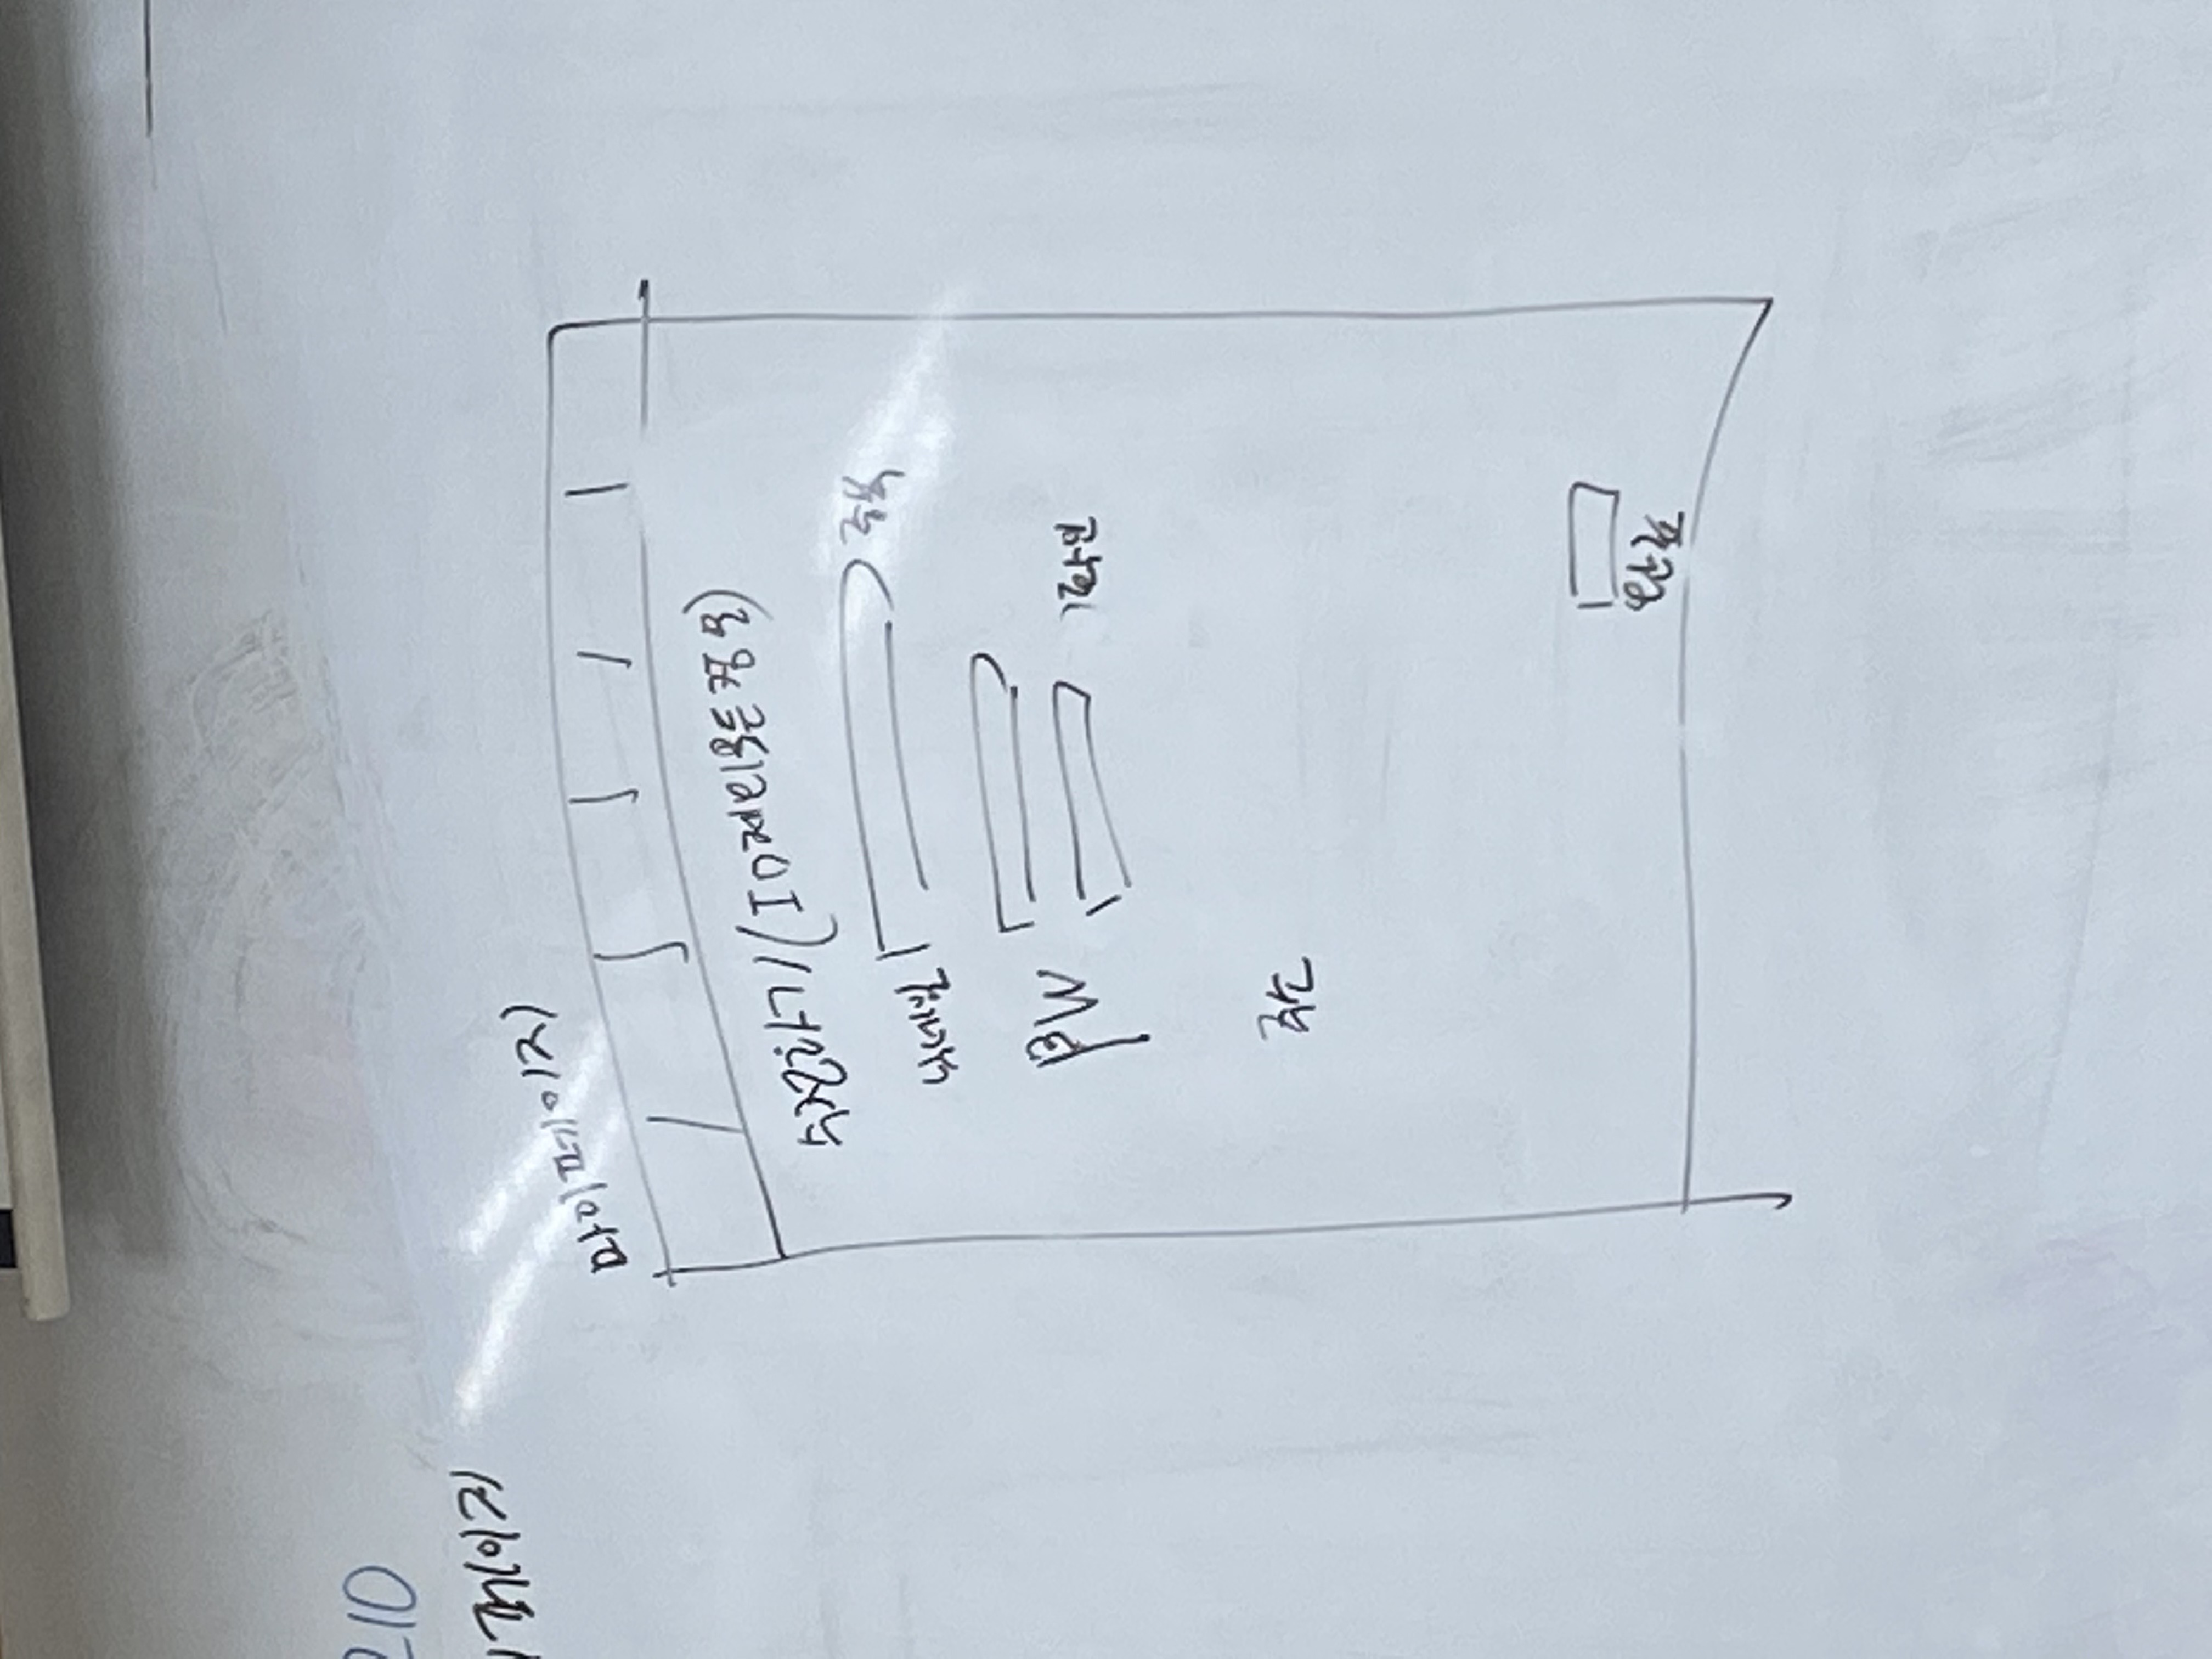 210
페이지
마이페이지
수정하기(ID제외 모든 정보)
닉네임
중복
PW
확인
주소
완료